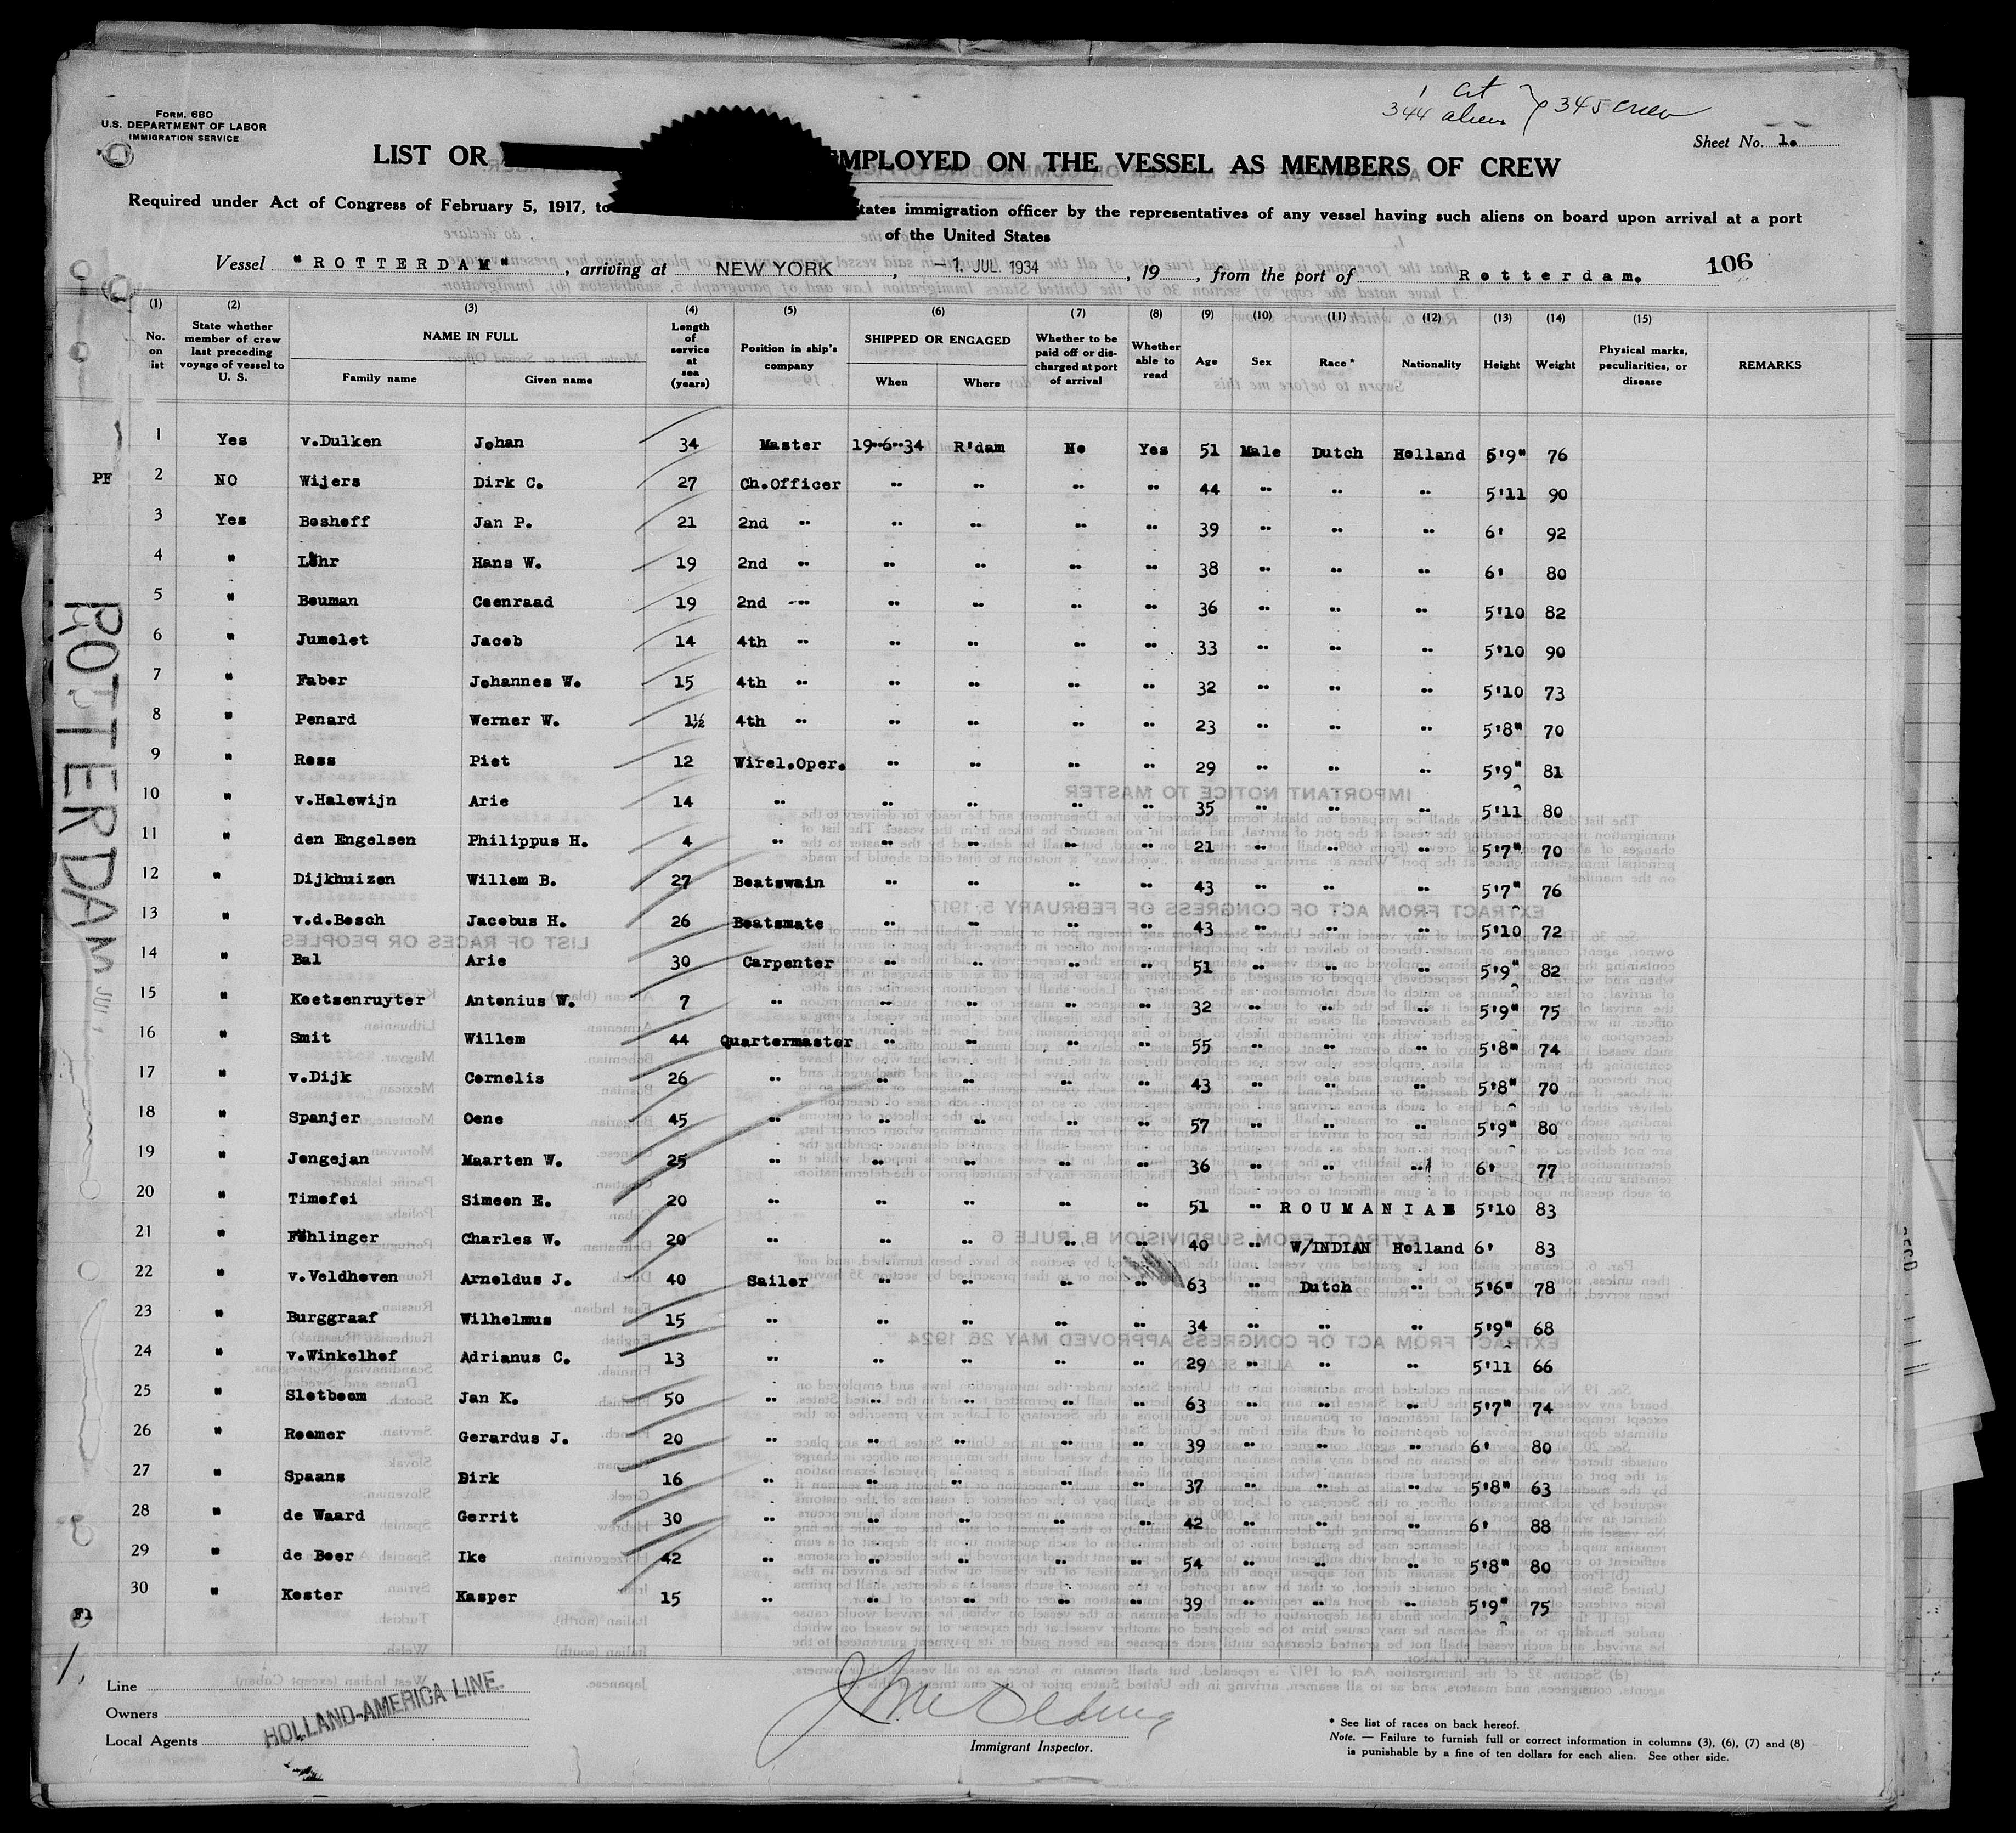 1 cit
344 aliens } 345 crew
FORM. 680
U.S. DEPARTMENT OF LABOR
IMMIGRATION SERVICE
Sheet No. 1.
LIST OR MPLOYED ON THE VESSEL AS MEMBERS OF CREW
Required under Act of Congress of February 5, 1917, to tates immigration officer by the representatives of any vessel having such aliens on board upon arrival at a port
of the United States
Vessel "ROTTERDAM", arriving at NEW YORK, -1. JUL. 1934, 19, from the port of Rotterdam. 106
(1) (2) (3) (4) (5) (6) (7) (8) (9) (10) (11) (12) (13) (14) (15)
No. on ist State whether member of crew last preceding voyage of vessel to U. S. NAME IN FULL Family name Given name Length of service at sea (years) Position in ship's company SHIPPED OR ENGAGED When Where Whether to be paid off or discharged at port of arrival Whether able to read Age Sex Race* Nationality Height Weight Physical marks, peculiarities, or disease REMARKS
1 Yes v.Dulken Johan 34 Master 19-6-34 R'dam No Yes 51 Male Dutch Holland 5'9" 76
PF 2 NO Wijers Dirk C. 27 Ch.Officer " " " " 44 " " " 5'11 90
3 Yes Boshoff Jan P. 21 2nd " " " " " 39 " " " 6' 92
4 " Löhr Hans W. 19 2nd " " " " " 38 " " " 6' 80
5 " Bouman Coenraad 19 2nd " " " " " 36 " " " 5'10 82
6 " Jumelet Jacob 14 4th " " " " " 33 " " " 5'10 90
7 " Faber Johannes W. 15 4th " " " " " 32 " " " 5'10 73
8 " Penard Werner W. 1½ 4th " " " " " 23 " " " 5'8" 70
9 " Ross Piet 12 Wirel.Oper. " " " " 29 " " " 5'9" 81
10 " v.Halewijn Arie 14 " " " " " 35 " " " 5'11 80
11 " den Engelsen Philippus H. 4 " " " " " 21 " " " 5'7" 70
12 " Dijkhuizen Willem B. 27 Boatswain " " " " 43 " " " 5'7" 76
13 " v.d.Bosch Jacobus H. 26 Boatsmate " " " " 43 " " " 5'10 72
14 " Bal Arie 30 Carpenter " " " " 51 " " " 5'9" 82
15 " Koetsenruyter Antonius W. 7 " " " " " 32 " " " 5'9" 75
16 " Smit Willem 44 Quartermaster " " " " 55 " " " 5'8" 74
17 " v.Dijk Cornelis 26 " " " " " 43 " " " 5'8" 70
18 " Spanjer Oene 45 " " " " " 57 " " " 5'9" 80
19 " Jongejan Maarten W. 25 " " " " " 36 " " " 6' 77
20 " Timofei Simeon E. 20 " " " " " 51 " ROUMANIAN 5'10 83
21 " Föhlinger Charles W. 20 " " " " " 40 " W/INDIAN Holland 6' 83
22 " v.Veldhoven Arnoldus J. 40 Sailor " " " " 63 " Dutch " 5'6" 78
23 " Burggraaf Wilhelmus 15 " " " " " 34 " " " 5'9" 68
24 " v.Winkelhof Adrianus C. 13 " " " " " 29 " " " 5'11 66
25 " Slotboom Jan K. 50 " " " " " 63 " " " 5'7" 74
26 " Roomer Gerardus J. 20 " " " " " 39 " " " 6' 80
27 " Spaans Dirk 16 " " " " " 37 " " " 5'8" 63
28 " de Waard Gerrit 30 " " " " " 42 " " " 6' 88
29 " de Boer Ike 42 " " " " " 54 " " " 5'8" 80
30 " Koster Kasper 15 " " " " " 39 " " " 5'9" 75
F1
ROTTERDAM JUL 1
Line
Owners
Local Agents
HOLLAND-AMERICA LINE.
Immigrant Inspector.
* See list of races on back hereof.
Note. — Failure to furnish full or correct information in columns (3), (6), (7) and (8)
is punishable by a fine of ten dollars for each alien. See other side.